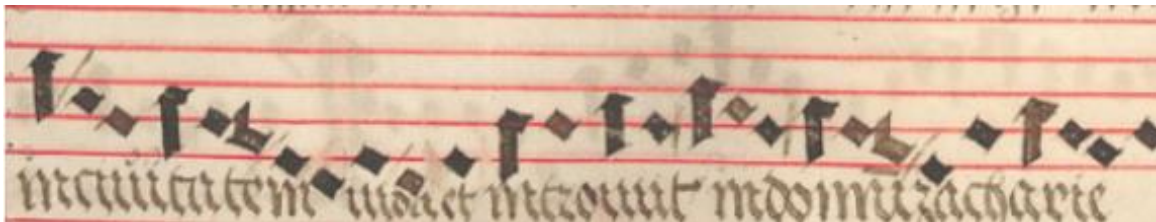 in ciuitatem iuda et intrauit in domu zacharie